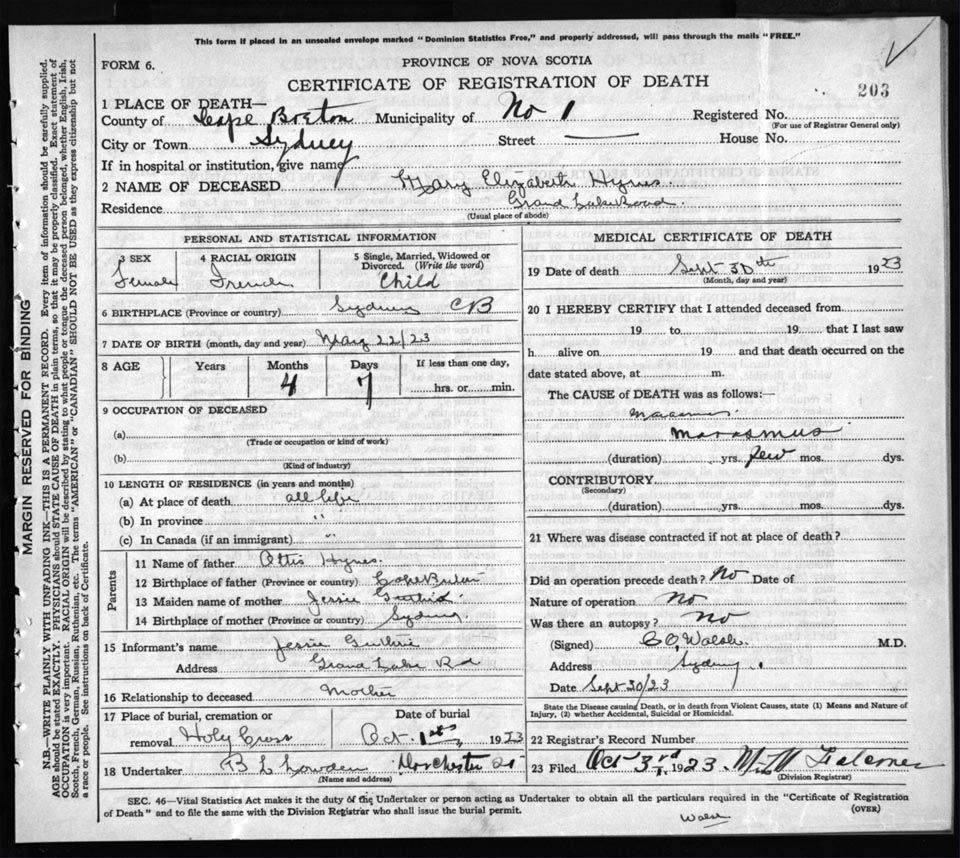 This form if placed in an unsealed envelope marked "Dominion Statistics Free," and properly addressed, will pass through the mails "FREE."
FORM 6.
PROVINCE OF NOVA SCOTIA
CERTIFICATE OF REGISTRATION OF DEATH
203
1 PLACE OF DEATH—
County of Cape Breton Municipality of No 1 Registered No.
(For use of Registrar General only)
City or Town Sydney Street House No.
If in hospital or institution, give name
2 NAME OF DECEASED Mary Elizabeth Hynes
Residence Grand Lake Road
(Usual place of abode)
PERSONAL AND STATISTICAL INFORMATION
3 SEX 4 RACIAL ORIGIN 5 Single, Married, Widowed or Divorced. (Write the word)
Female French Child
6 BIRTHPLACE (Province or country) Sydney CB
7 DATE OF BIRTH (month, day and year) 22/23
8 AGE Years Months Days If less than one day,
4 7 hrs. or min.
9 OCCUPATION OF DECEASED
(a)
(Trade or occupation or kind of work)
(b)
(Kind of industry)
10 LENGTH OF RESIDENCE (in years and months)
(a) At place of death all life
(b) In province "
(c) In Canada (if an immigrant) "
Parents
11 Name of father Ottis Hynes
12 Birthplace of father (Province or country) Cape Breton
13 Maiden name of mother Jessie Guthrie
14 Birthplace of mother (Province or country) Sydney
15 Informant's name Jessie Guthrie
Address Grand Lake Rd
16 Relationship to deceased Mother
17 Place of burial, cremation or Date of burial
removal Holy Cross Oct. 1st 1923
18 Undertaker B L Lowden Dorchester St
(Name and address)
MEDICAL CERTIFICATE OF DEATH
19 Date of death Sept 30th 1923
(Month, day and year)
20 I HEREBY CERTIFY that I attended deceased from
19 to 19 that I last saw
h alive on 19 and that death occurred on the
date stated above, at m.
The CAUSE of DEATH was as follows:—
Marasmus
Marasmus
(duration) yrs. few mos. dys.
CONTRIBUTORY
(Secondary)
(duration) yrs. mos. dys.
21 Where was disease contracted if not at place of death?
Did an operation precede death? No Date of
Nature of operation No
Was there an autopsy? No
(Signed) Walsh M.D.
Address Sydney
Date Sept 30/23
State the Disease causing Death, or in death from Violent Causes, state (1) Means and Nature of
Injury, (2) whether Accidental, Suicidal or Homicidal.
22 Registrar's Record Number
23 Filed Oct 3rd, 1923 Falconer
(Division Registrar)
SEC. 46—Vital Statistics Act makes it the duty of the Undertaker or person acting as Undertaker to obtain all the particulars required in the "Certificate of Registration
of Death" and to file the same with the Division Registrar who shall issue the burial permit.
(OVER)
MARGIN RESERVED FOR BINDING
N.B.—WRITE PLAINLY WITH UNFADING INK—THIS IS A PERMANENT RECORD. Every item of information should be carefully supplied.
AGE should be stated EXACTLY. PHYSICIANS should STATE CAUSE OF DEATH in plain terms, so that it may be properly classified. Exact statement of
OCCUPATION is very important. RACIAL ORIGIN will be described by stating to what people or tongue the deceased person belonged, whether English, Irish,
Scotch, French, German, Russian, Ruthenian, etc. The terms "AMERICAN" or "CANADIAN" SHOULD NOT BE USED as they express citizenship but not
a race or people. See instructions on back of Certificate.